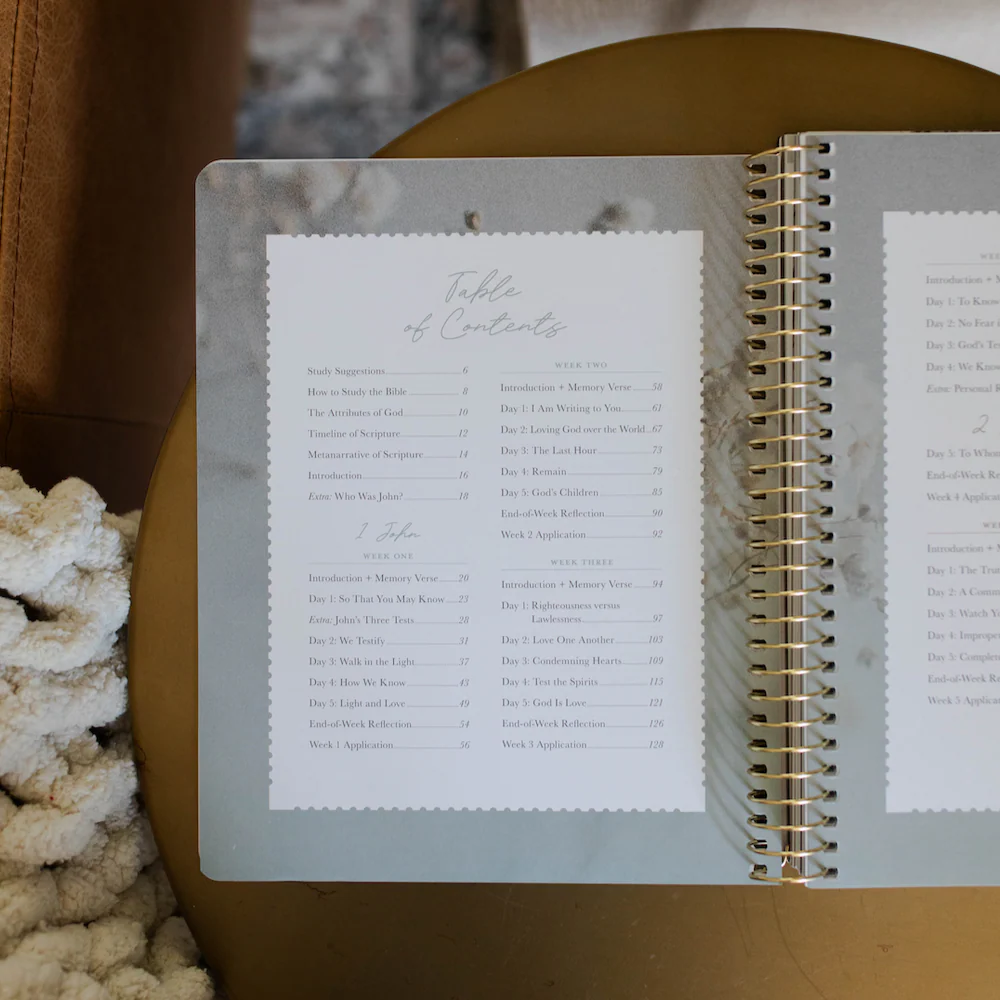 Table
of Contents
Study Suggestions 6
How to Study the Bible 8
The Attributes of God 10
Timeline of Scripture 12
Metanarrative of Scripture 14
Introduction 16
Extra: Who Was John? 18
1 John
WEEK ONE
Introduction + Memory Verse 20
Day 1: So That You May Know 23
Extra: John's Three Tests 28
Day 2: We Testify 31
Day 3: Walk in the Light 37
Day 4: How We Know 43
Day 5: Light and Love 49
End-of-Week Reflection 54
Week 1 Application 56
WEEK TWO
Introduction + Memory Verse 58
Day 1: I Am Writing to You 61
Day 2: Loving God over the World 67
Day 3: The Last Hour 73
Day 4: Remain 79
Day 5: God's Children 85
End-of-Week Reflection 90
Week 2 Application 92
WEEK THREE
Introduction + Memory Verse 94
Day 1: Righteousness versus
Lawlessness 97
Day 2: Love One Another 103
Day 3: Condemning Hearts 109
Day 4: Test the Spirits 115
Day 5: God Is Love 121
End-of-Week Reflection 126
Week 3 Application 128
Introduction +
Day 1: To Know
Day 2: No Fear
Day 3: God's
Day 4: We Know
Extra: Personal
2
Day 5: To
End-of-Week
Week 4
Introduction +
Day 1: The
Day 2: A
Day 3: Watch
Day 4:
Day 5:
End-of-Week
Week 5